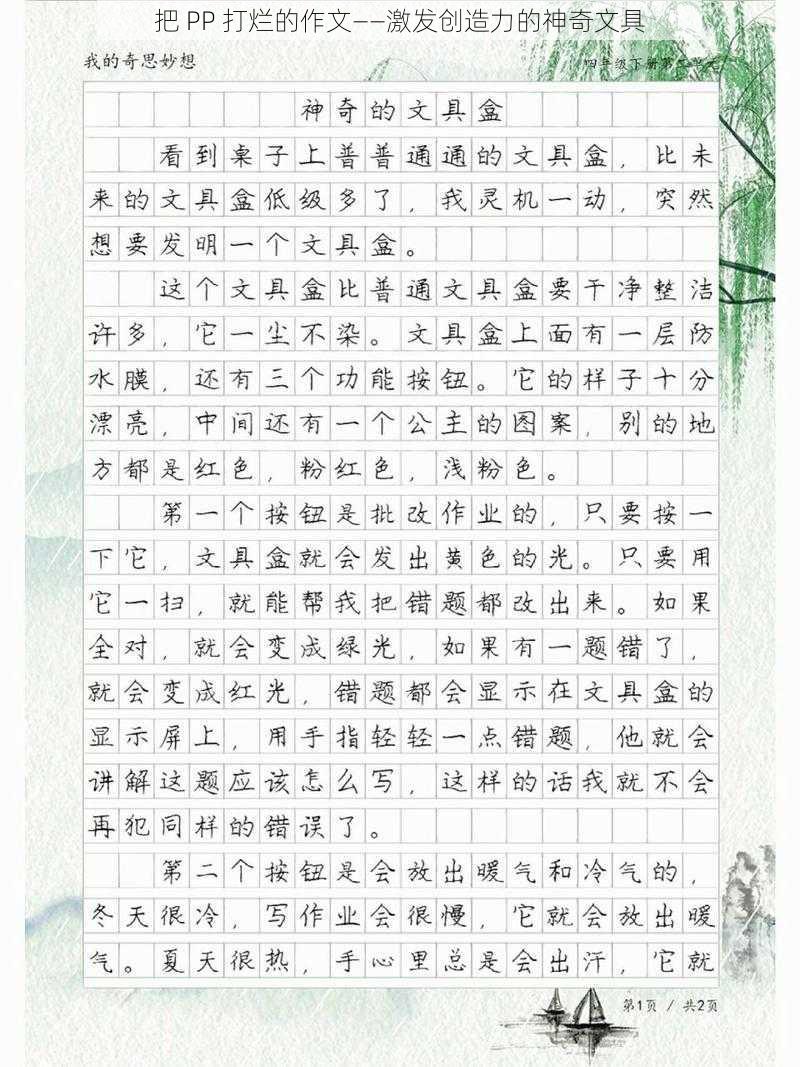 把 PP 打烂的作文——激发创造力的神奇文具
我的奇思妙想
四年级下册第二单元
神奇的文具盒
看到桌子上普普通通的文具盒，比未
来的文具盒低级多了，我灵机一动，突然
想要发明一个文具盒。
这个文具盒比普通文具盒要干净整洁
许多，它一尘不染。文具盒上面有一层防
水膜，还有三个功能按钮。它的样子十分
漂亮，中间还有一个公主的图案，别的地
方都是红色，粉红色，浅粉色。
第一个按钮是批改作业的，只要按一
下它，文具盒就会发出黄色的光。只要用
它一扫，就能帮我把错题都改出来。如果
全对，就会变成绿光，如果有一题错了，
就会变成红光，错题都会显示在文具盒的
显示屏上，用手指轻轻一点错题，他就会
讲解这题应该怎么写，这样的话我就不会
再犯同样的错误了。
第二个按钮是会放出暖气和冷气的，
冬天很冷，写作业会很慢，它就会放出暖
气。夏天很热，手心里总是会出汗，它就
第1页 / 共2页